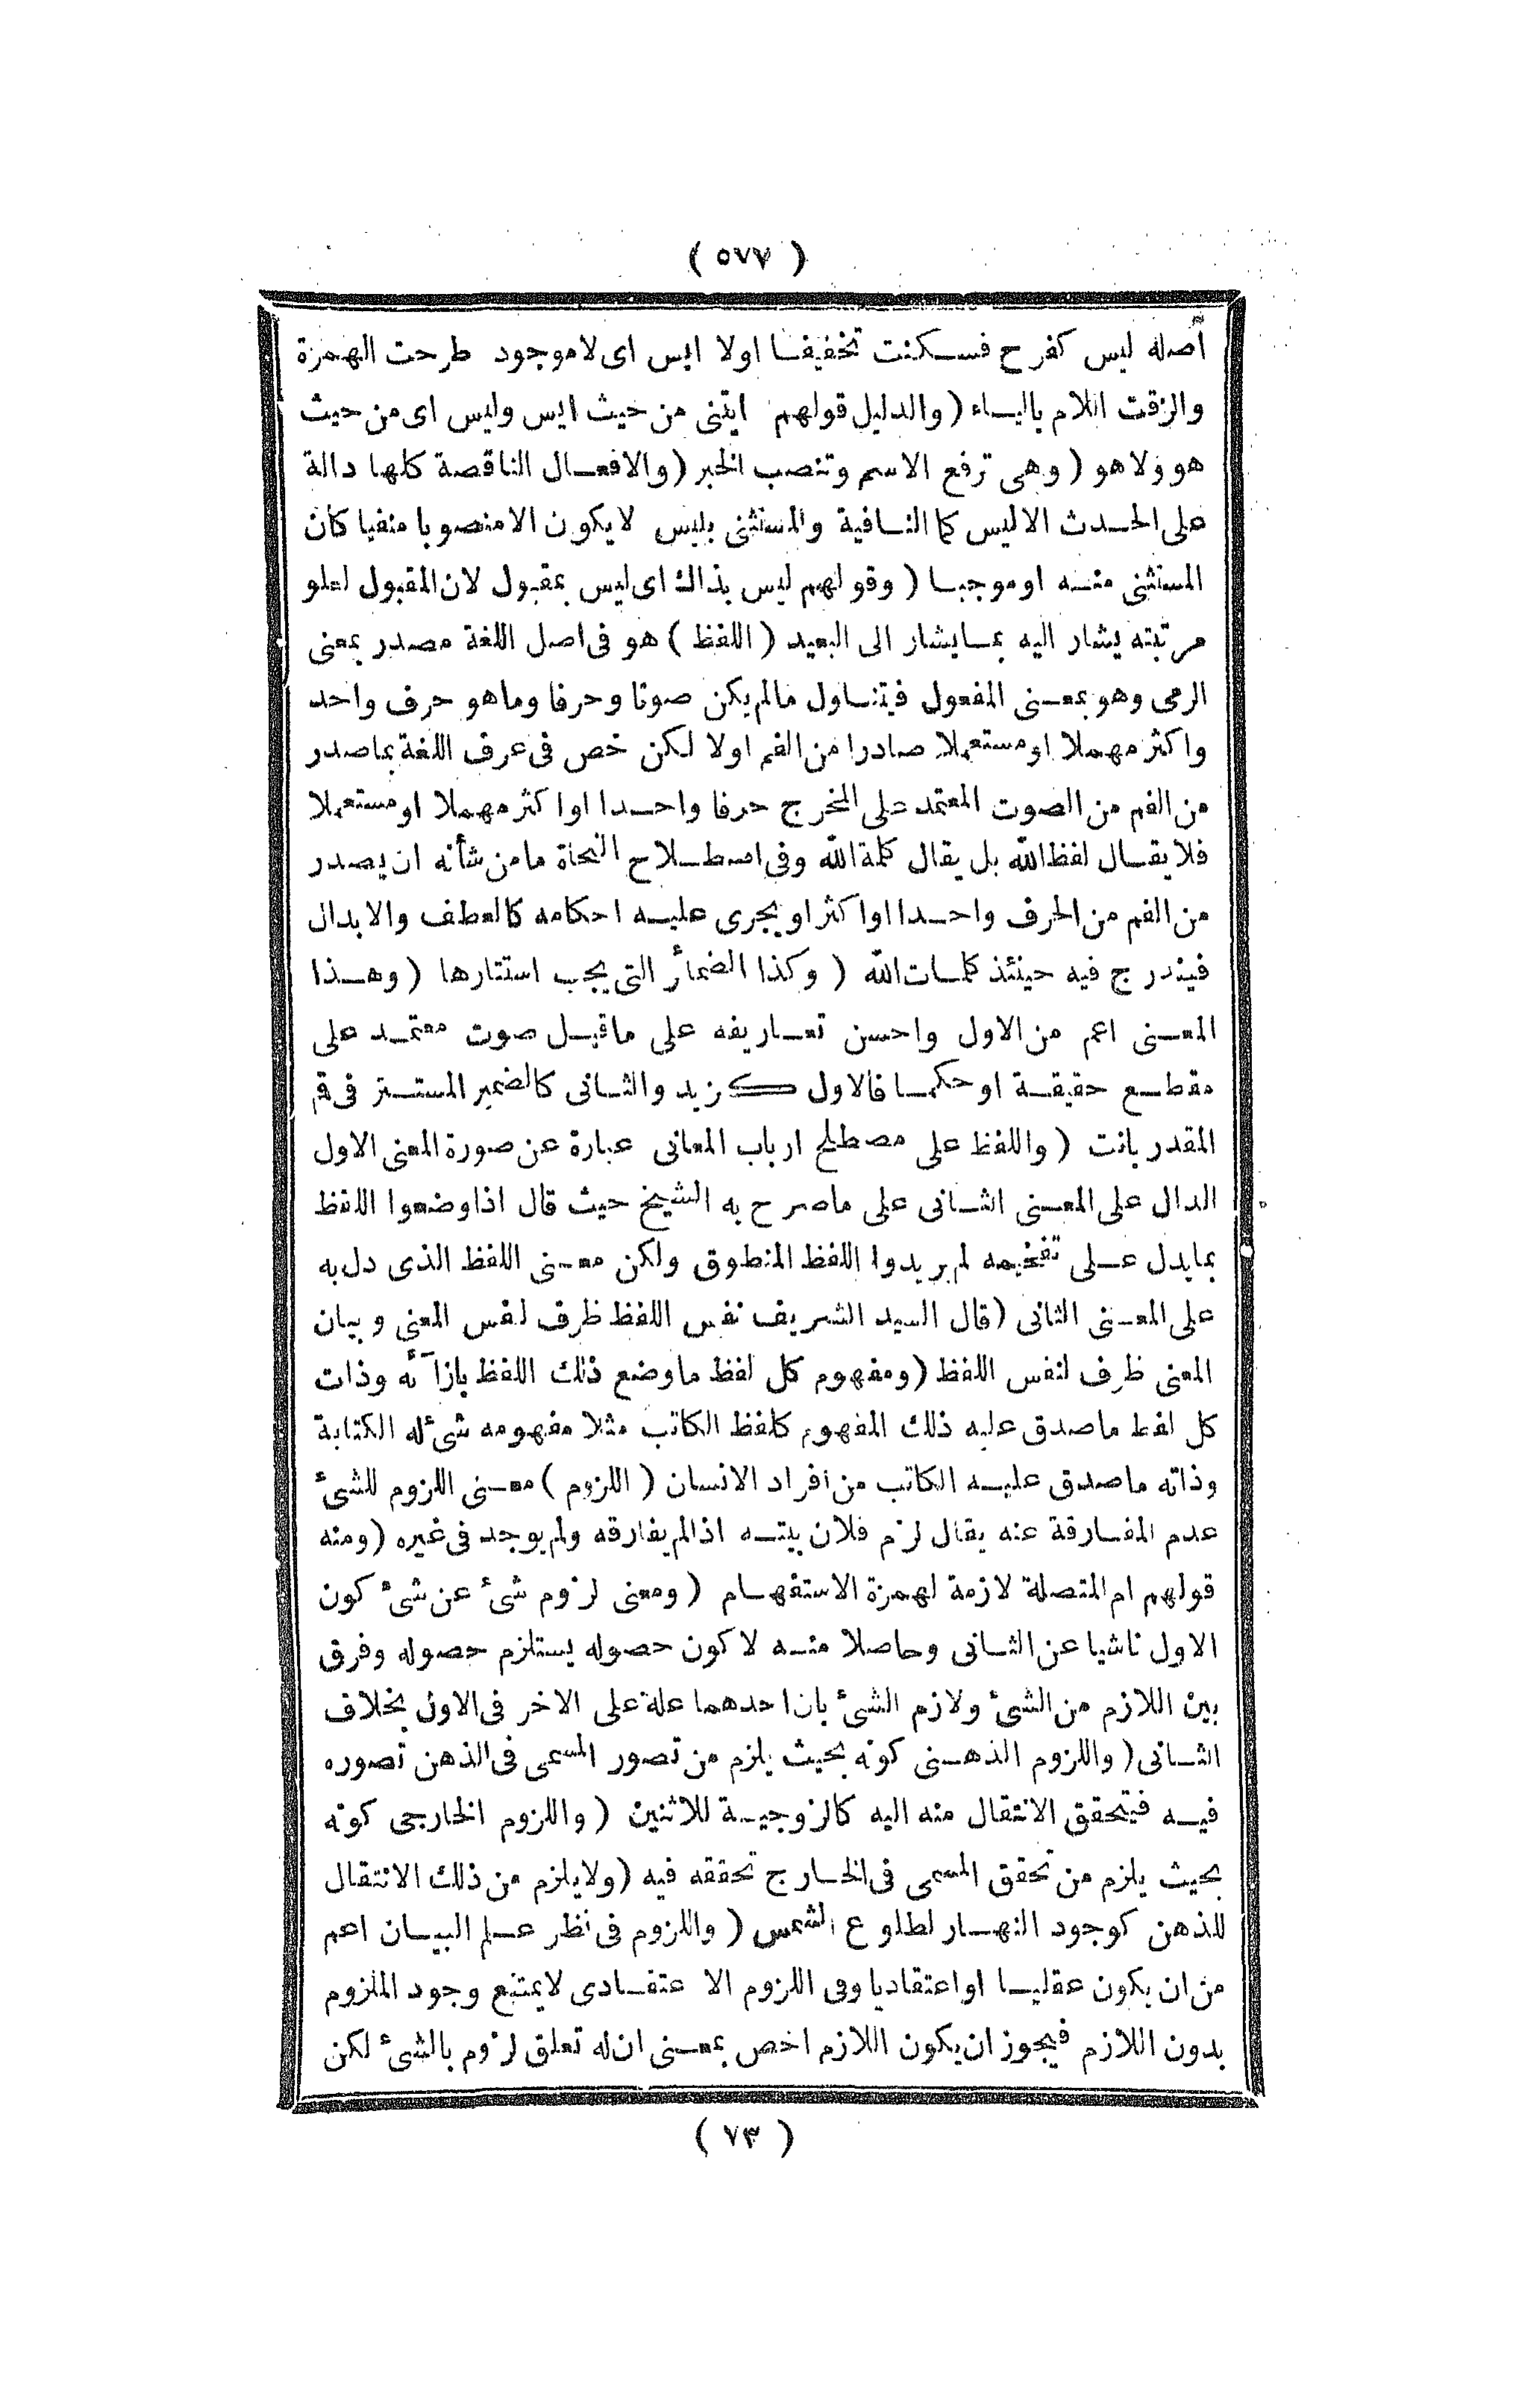 ( ٥٧٧ )
أصله ليس كفرح فسكنت تخفيفا اولا ايس اى لاموجود طرحت الهمزة
والزقت اللام بالياء ( والدليل قولهم ايتنى من حيث ايس وليس اى من حيث
هو ولاهو ( وهى ترفع الاسم وتنصب الخبر ( والافعال الناقصة كلها دالة
على الحدث الاليس كما النافية والمستثنى بليس لايكون الا منصوبا منفيا كان
المستثنى منه اوموجبا ( وقولهم ليس بذاك اى ليس بمقبول لان المقبول لعلو
مرتبته يشار اليه بمايشار الى البعيد ( اللفظ ) هو فى اصل اللغة مصدر بمعنى
الرمى وهو بمعنى المفعول فيتناول مالم يكن صوتا وحرفا وماهو حرف واحد
واكثر مهملا اومستعملا صادرا من الفم اولا لكن خص فى عرف اللغة بماصدر
من الفم من الصوت المعتمد على المخرج حرفا واحدا او اكثر مهملا اومستعملا
فلايقال لفظ الله بل يقال كلمة الله وفى اصطلاح النحاة مامن شأنه ان يصدر
من الفم من الحرف واحدا او اكثر او يجرى عليه احكامه كالعطف والابدال
فيندرج فيه حينئذ كلمات الله ( وكذا الضمائر التى يجب استتارها ( وهذا
المعنى اعم من الاول واحسن تعاريفه على ماقيل صوت معتمد على
مقطع حقيقة اوحكما فالاول كزيد والثانى كالضمير المستتر فى قم
المقدر بانت ( واللفظ على مصطلح ارباب المعانى عبارة عن صورة المعنى الاول
الدال على المعنى الثانى على ماصرح به الشيخ حيث قال اذا وضعوا اللفظ
بمايدل على تفخيمه لم يريدوا اللفظ المنطوق ولكن معنى اللفظ الذى دل به
على المعنى الثانى ( قال السيد الشريف نفس اللفظ ظرف لنفس المعنى وبيان
المعنى ظرف لنفس اللفظ ( ومفهوم كل لفظ ماوضع ذلك اللفظ بازآئه وذات
كل لفظ ماصدق عليه ذلك المفهوم كلفظ الكاتب مثلا مفهومه شئ له الكتابة
وذاته ماصدق عليه الكاتب من افراد الانسان ( اللزوم ) معنى اللزوم للشئ
عدم المفارقة عنه يقال لزم فلان بيته اذالم يفارقه ولم يوجد فى غيره ( ومنه
قولهم ام المتصلة لازمة لهمزة الاستفهام ( ومعنى لزوم شئ عن شئ كون
الاول ناشيا عن الثانى وحاصلا منه لا كون حصوله يستلزم حصوله وفرق
بين اللازم من الشئ ولازم الشئ بان احدهما علة على الاخر فى الاول بخلاف
الثانى ( واللزوم الذهنى كونه بحيث يلزم من تصور المسمى فى الذهن تصوره
فيه فيتحقق الانتقال منه اليه كالزوجية للاثنين ( واللزوم الخارجى كونه
بحيث يلزم من تحقق المسمى فى الخارج تحققه فيه ( ولايلزم من ذلك الانتقال
للذهن كوجود النهار لطلوع الشمس ( واللزوم فى نظر علم البيان اعم
من ان يكون عقليا او اعتقاديا وفى اللزوم الا عتقادى لايمتنع وجود الملزوم
بدون اللازم فيجوز ان يكون اللازم اخص بمعنى ان له تعلق لزوم بالشئ لكن
( ٧٣ )